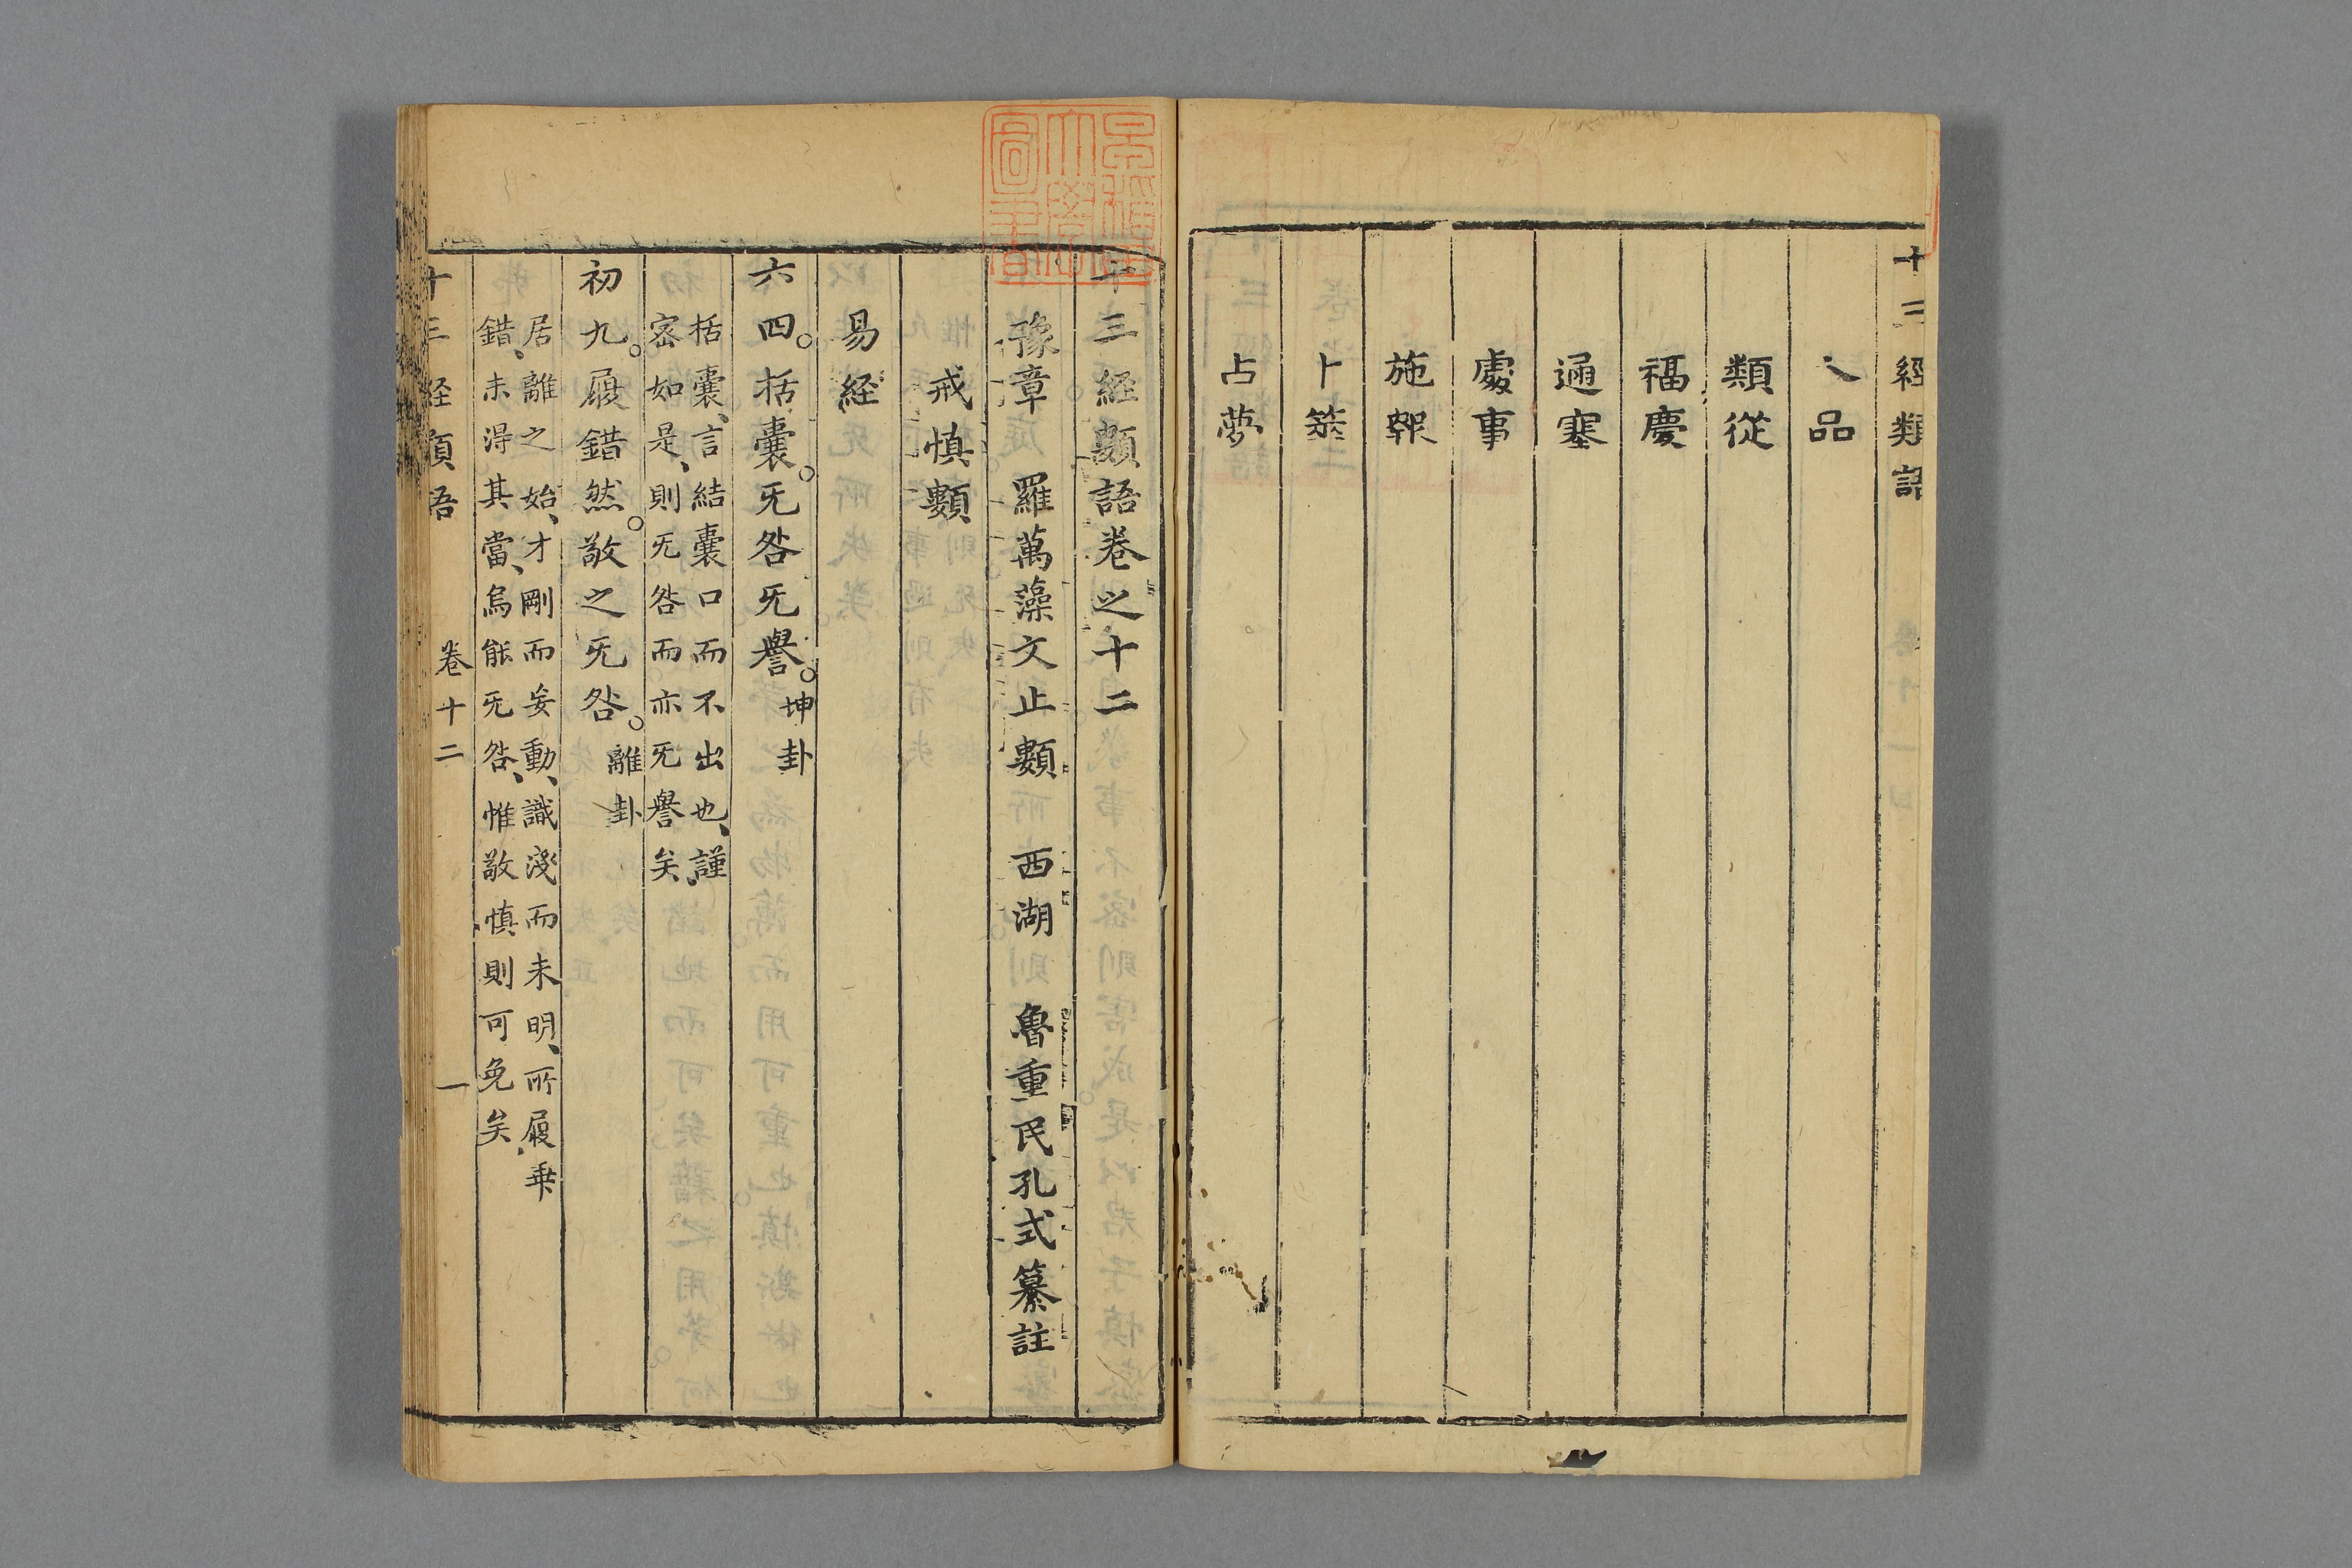 十三經類語
人品
類從
福慶
通塞
處事
施報
卜筮
占夢
十三経類語卷之十二
豫章 羅萬藻文止類 西湖 魯重民孔式纂註
戒慎類
易経
六四。括囊。无咎无譽。坤卦
括囊、言結囊口而不出也、謹
密如是、則无咎而亦无譽矣、
初九。履錯然。敬之无咎。離卦
居離之始、才剛而妄動、識淺而未明、所履乗
錯、未得其當、烏能无咎、惟敬慎則可免矣、
十三経類語 卷十二 一